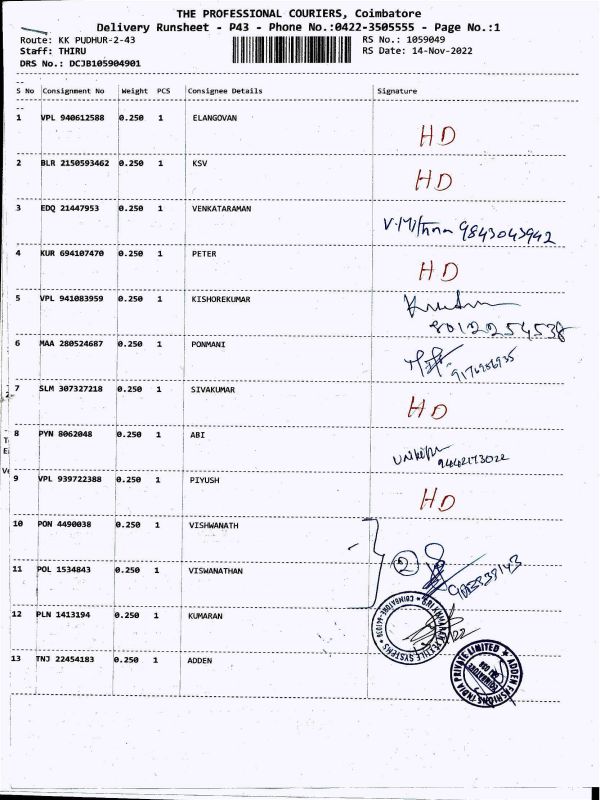 THE PROFESSIONAL COURIERS, Coimbatore
Delivery Runsheet - P43 - Phone No.:0422-3505555 - Page No.:1
Route: KK PUDHUR-2-43 RS No.: 1059049
Staff: THIRU RS Date: 14-Nov-2022
DRS No.: DCJB105904901
S No Consignment No Weight PCS Consignee Details Signature
1 VPL 940612588 0.250 1 ELANGOVAN HD
2 BLR 2150593462 0.250 1 KSV HD
3 EDQ 21447953 0.250 1 VENKATARAMAN 9843043942
4 KUR 694107470 0.250 1 PETER HD
5 VPL 941083959 0.250 1 KISHOREKUMAR
8012254538
6 MAA 280524687 0.250 1 PONMANI
7 SLM 307327218 0.250 1 SIVAKUMAR HD
8 PYN 8062048 0.250 1 ABI
9 VPL 939722388 0.250 1 PIYUSH HD
10 PON 4490038 0.250 1 VISHWANATH
11 POL 1534843 0.250 1 VISWANATHAN 2
12 PLN 1413194 0.250 1 KUMARAN
13 TNJ 22454183 0.250 1 ADDEN
ADDEN FASHIONS INDIA PRIVATE LIMITED
COIMBATORE